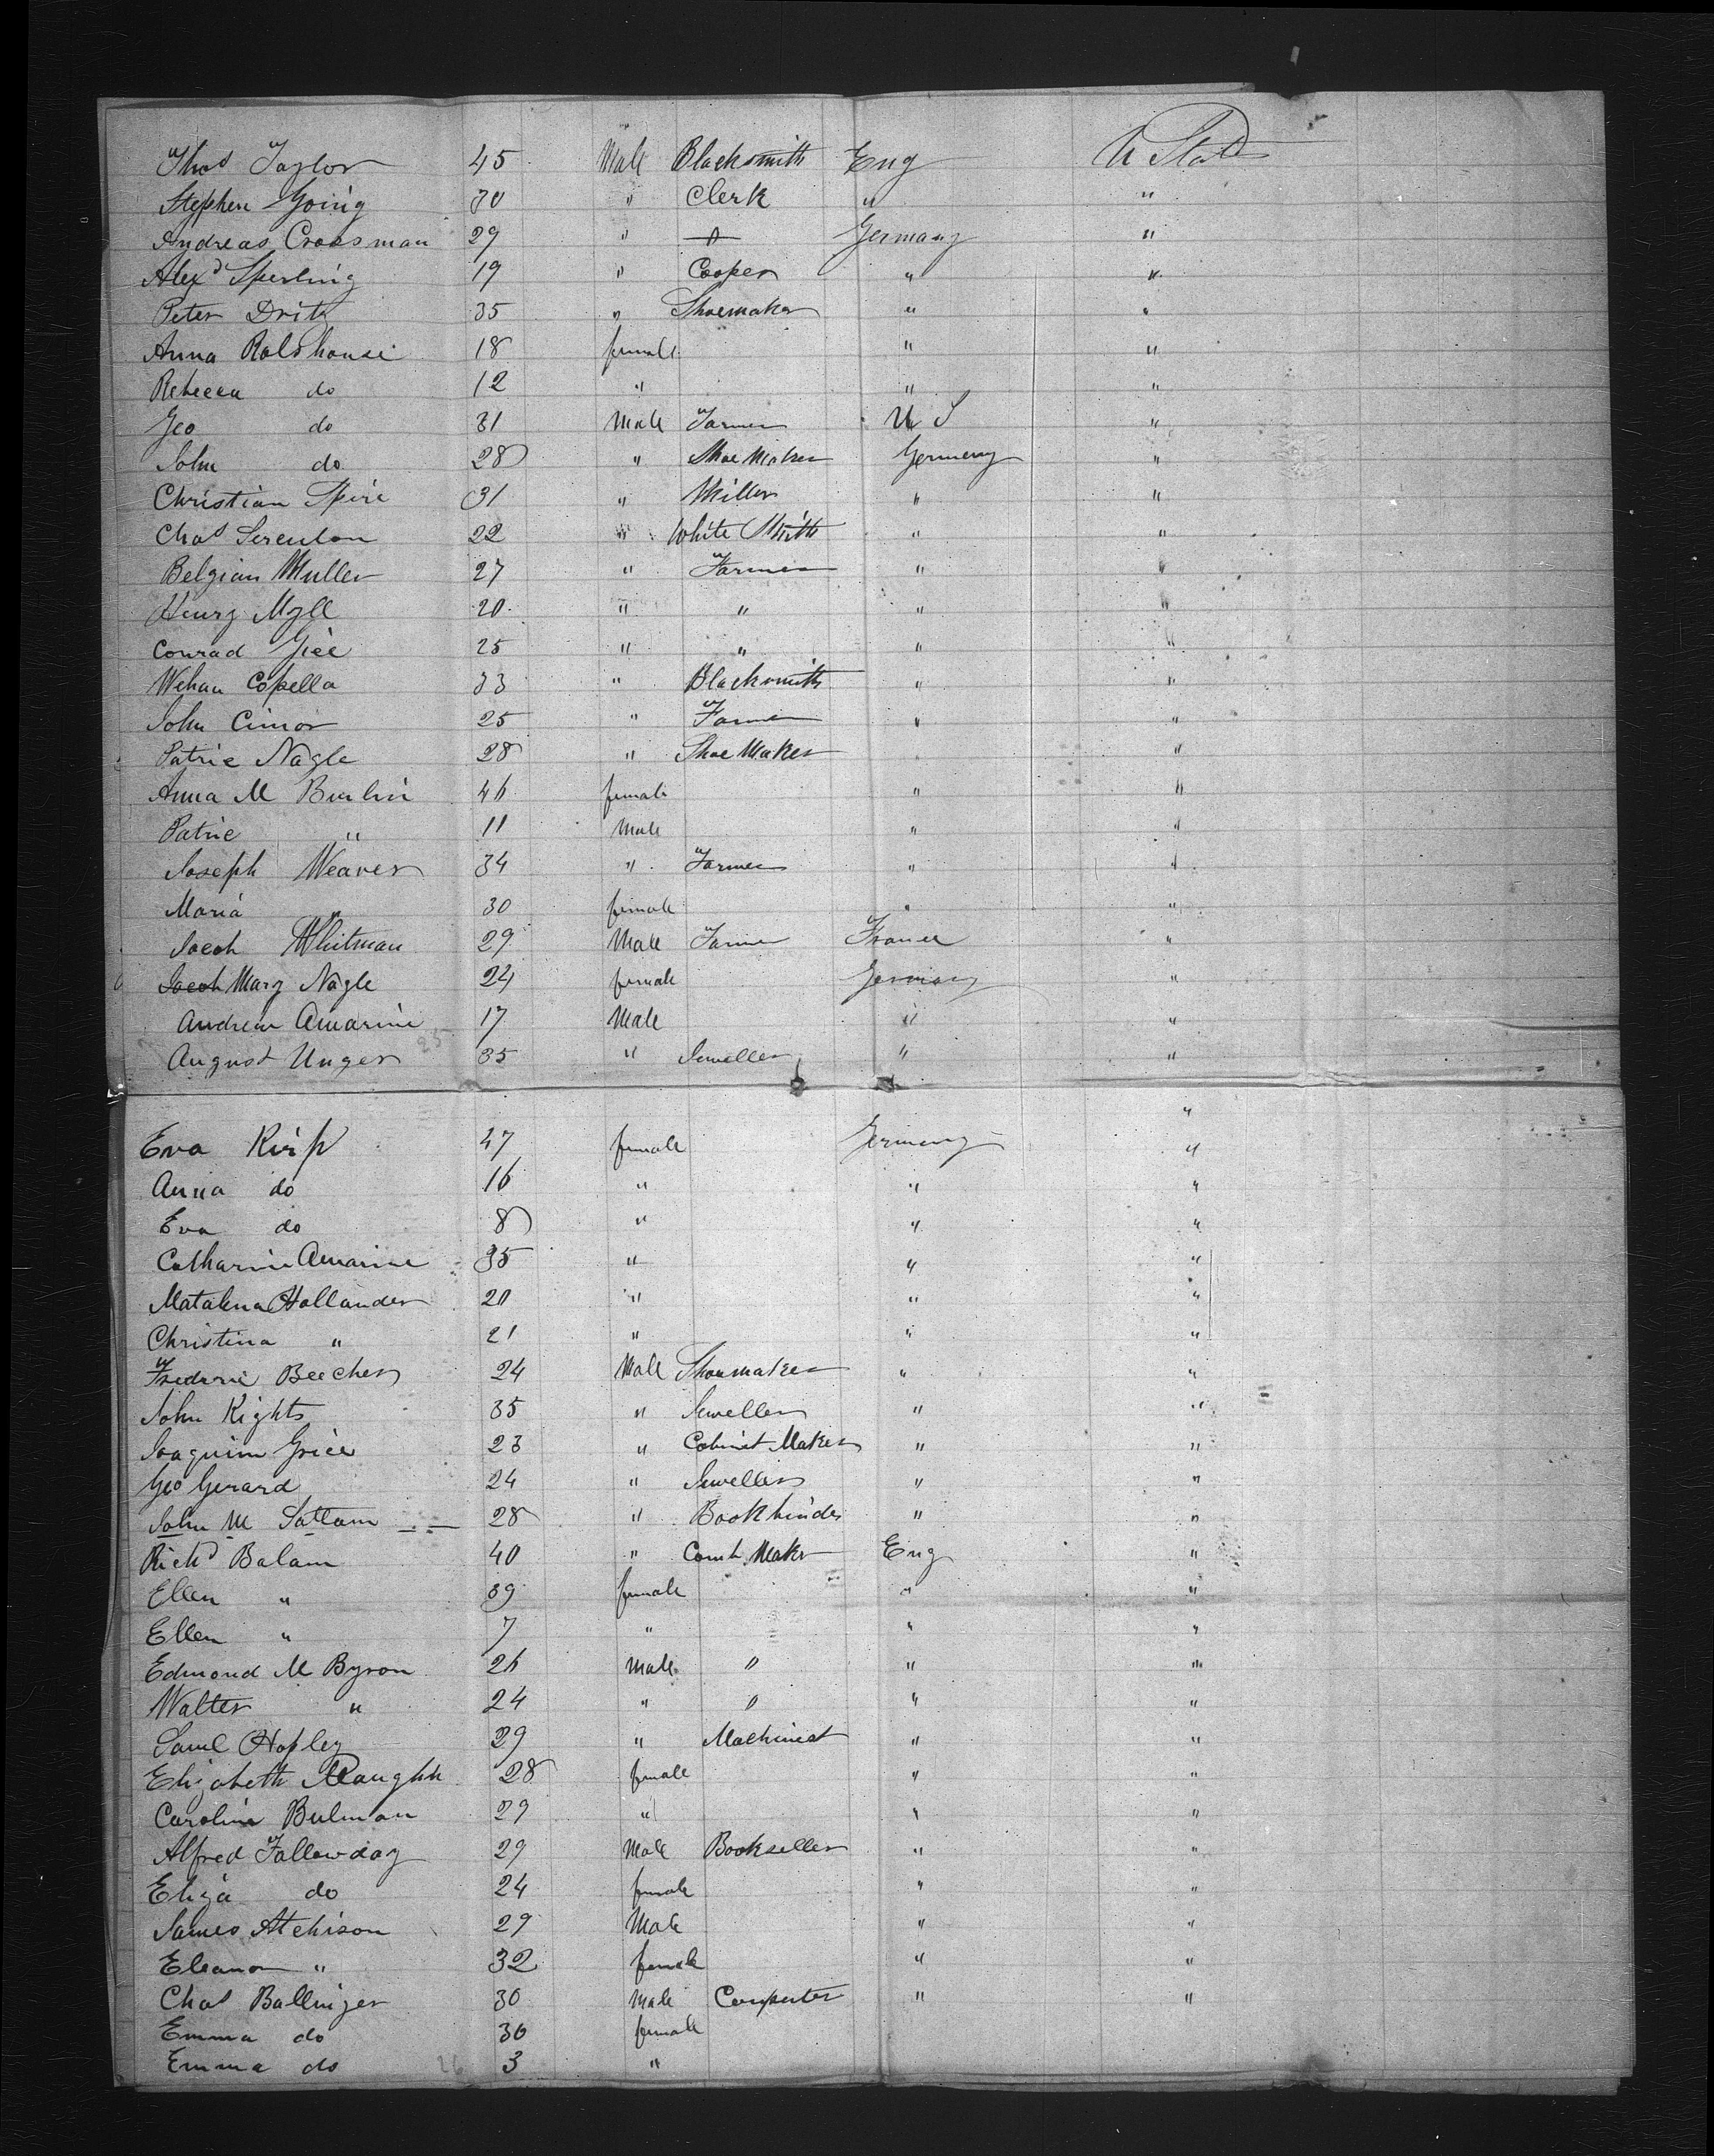 Thos Taylor 45 Male Blacksmith Eng U States
Stephen Going 30 " Clerk " "
Andreas Crossman 29 " " Germany "
Alexd Sperling 19 " Cooper " "
Peter Drity 35 " Shoemaker " "
Anna Roldhouse 18 female " "
Rebecca do 12 " " "
Geo do 31 Male Farmer U S "
John do 28 " Shoe Maker Germany "
Christian Spire 31 " Miller " "
Chas Serenton 22 " White Smith " "
Belgian Muller 27 " Farmer " "
Henry Myll 20 " " " "
Conrad Giee 25 " " " "
Wehan Copella 33 " Blacksmith " "
John Cimor 25 " Farmer " "
Patric Nagle 28 " Shoe Maker " "
Anna M Burlin 46 female " "
Patric " 11 Male " "
Joseph Weaver 34 " Farmer " "
Maria " 30 female " "
Jacob Whitman 29 Male Farmer France "
Jacob Mary Nagle 24 female Germany "
Andrew Amarine 17 Male " "
August Unger 25 35 " Jeweller " "
"
Eva Kirp 47 female Germany "
Anna do 16 " " "
Eva do 8 " " "
Catharine Amarine 35 " " "
Matalena Hollander 20 " " "
Christina " 21 " " "
Frederic Beecher 24 Male Shoemaker " "
John Rights 35 " Jeweller " "
Joaquim Griee 23 " Cabinet Maker " "
Geo Gerard 24 " Jeweller " "
John M Sattam 28 " Bookbinder " "
Richd Balam 40 " Comb Maker Eng "
Ellen " 39 female " "
Ellen " 7 " " "
Edmond M Byron 26 Male " " "
Walter " 24 " " " "
Saml Hopley 29 " Machinist " "
Elizabeth 28 female " "
Caroline Bulman 29 " " "
Alfred Falloway 29 Male Bookseller " "
Eliza do 24 female " "
James Atchison 29 Male " "
Eleanor " 32 female " "
Chas Ballinger 30 Male Carpenter " "
Emma do 30 female
Emma do 26 3 "